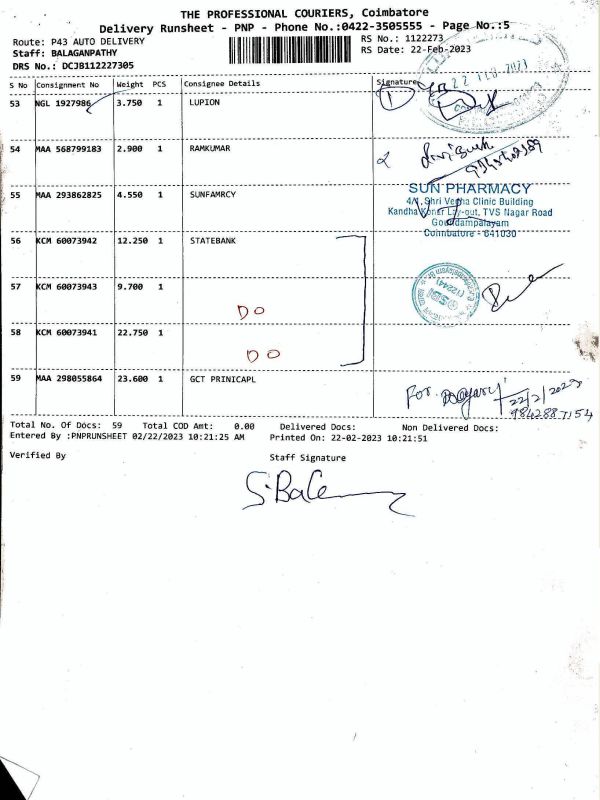 THE PROFESSIONAL COURIERS, Coimbatore
Delivery Runsheet - PNP - Phone No.:0422-3505555 - Page No.:5
Route: P43 AUTO DELIVERY RS No.: 1122273
Staff: BALAGANPATHY RS Date: 22-Feb-2023
DRS No.: DCJB112227305
S No Consignment No Weight PCS Consignee Details Signature
22 FEB 2023
53 NGL 1927986 3.750 1 LUPION
54 MAA 568799183 2.900 1 RAMKUMAR
55 MAA 293862825 4.550 1 SUNFAMRCY
SUN PHARMACY
4/1, Shri Vegha Clinic Building
Kandha Konar Lay-out, TVS Nagar Road
Goundampalayam
Coimbatore - 641030
56 KCM 60073942 12.250 1 STATEBANK
57 KCM 60073943 9.700 1
DO
SBI
58 KCM 60073941 22.750 1
DO
59 MAA 298055864 23.600 1 GCT PRINICAPL
For
22/2/2023
9842887154
Total No. Of Docs: 59 Total COD Amt: 0.00 Delivered Docs: Non Delivered Docs:
Entered By :PNPRUNSHEET 02/22/2023 10:21:25 AM Printed On: 22-02-2023 10:21:51
Verified By Staff Signature
S.Bale